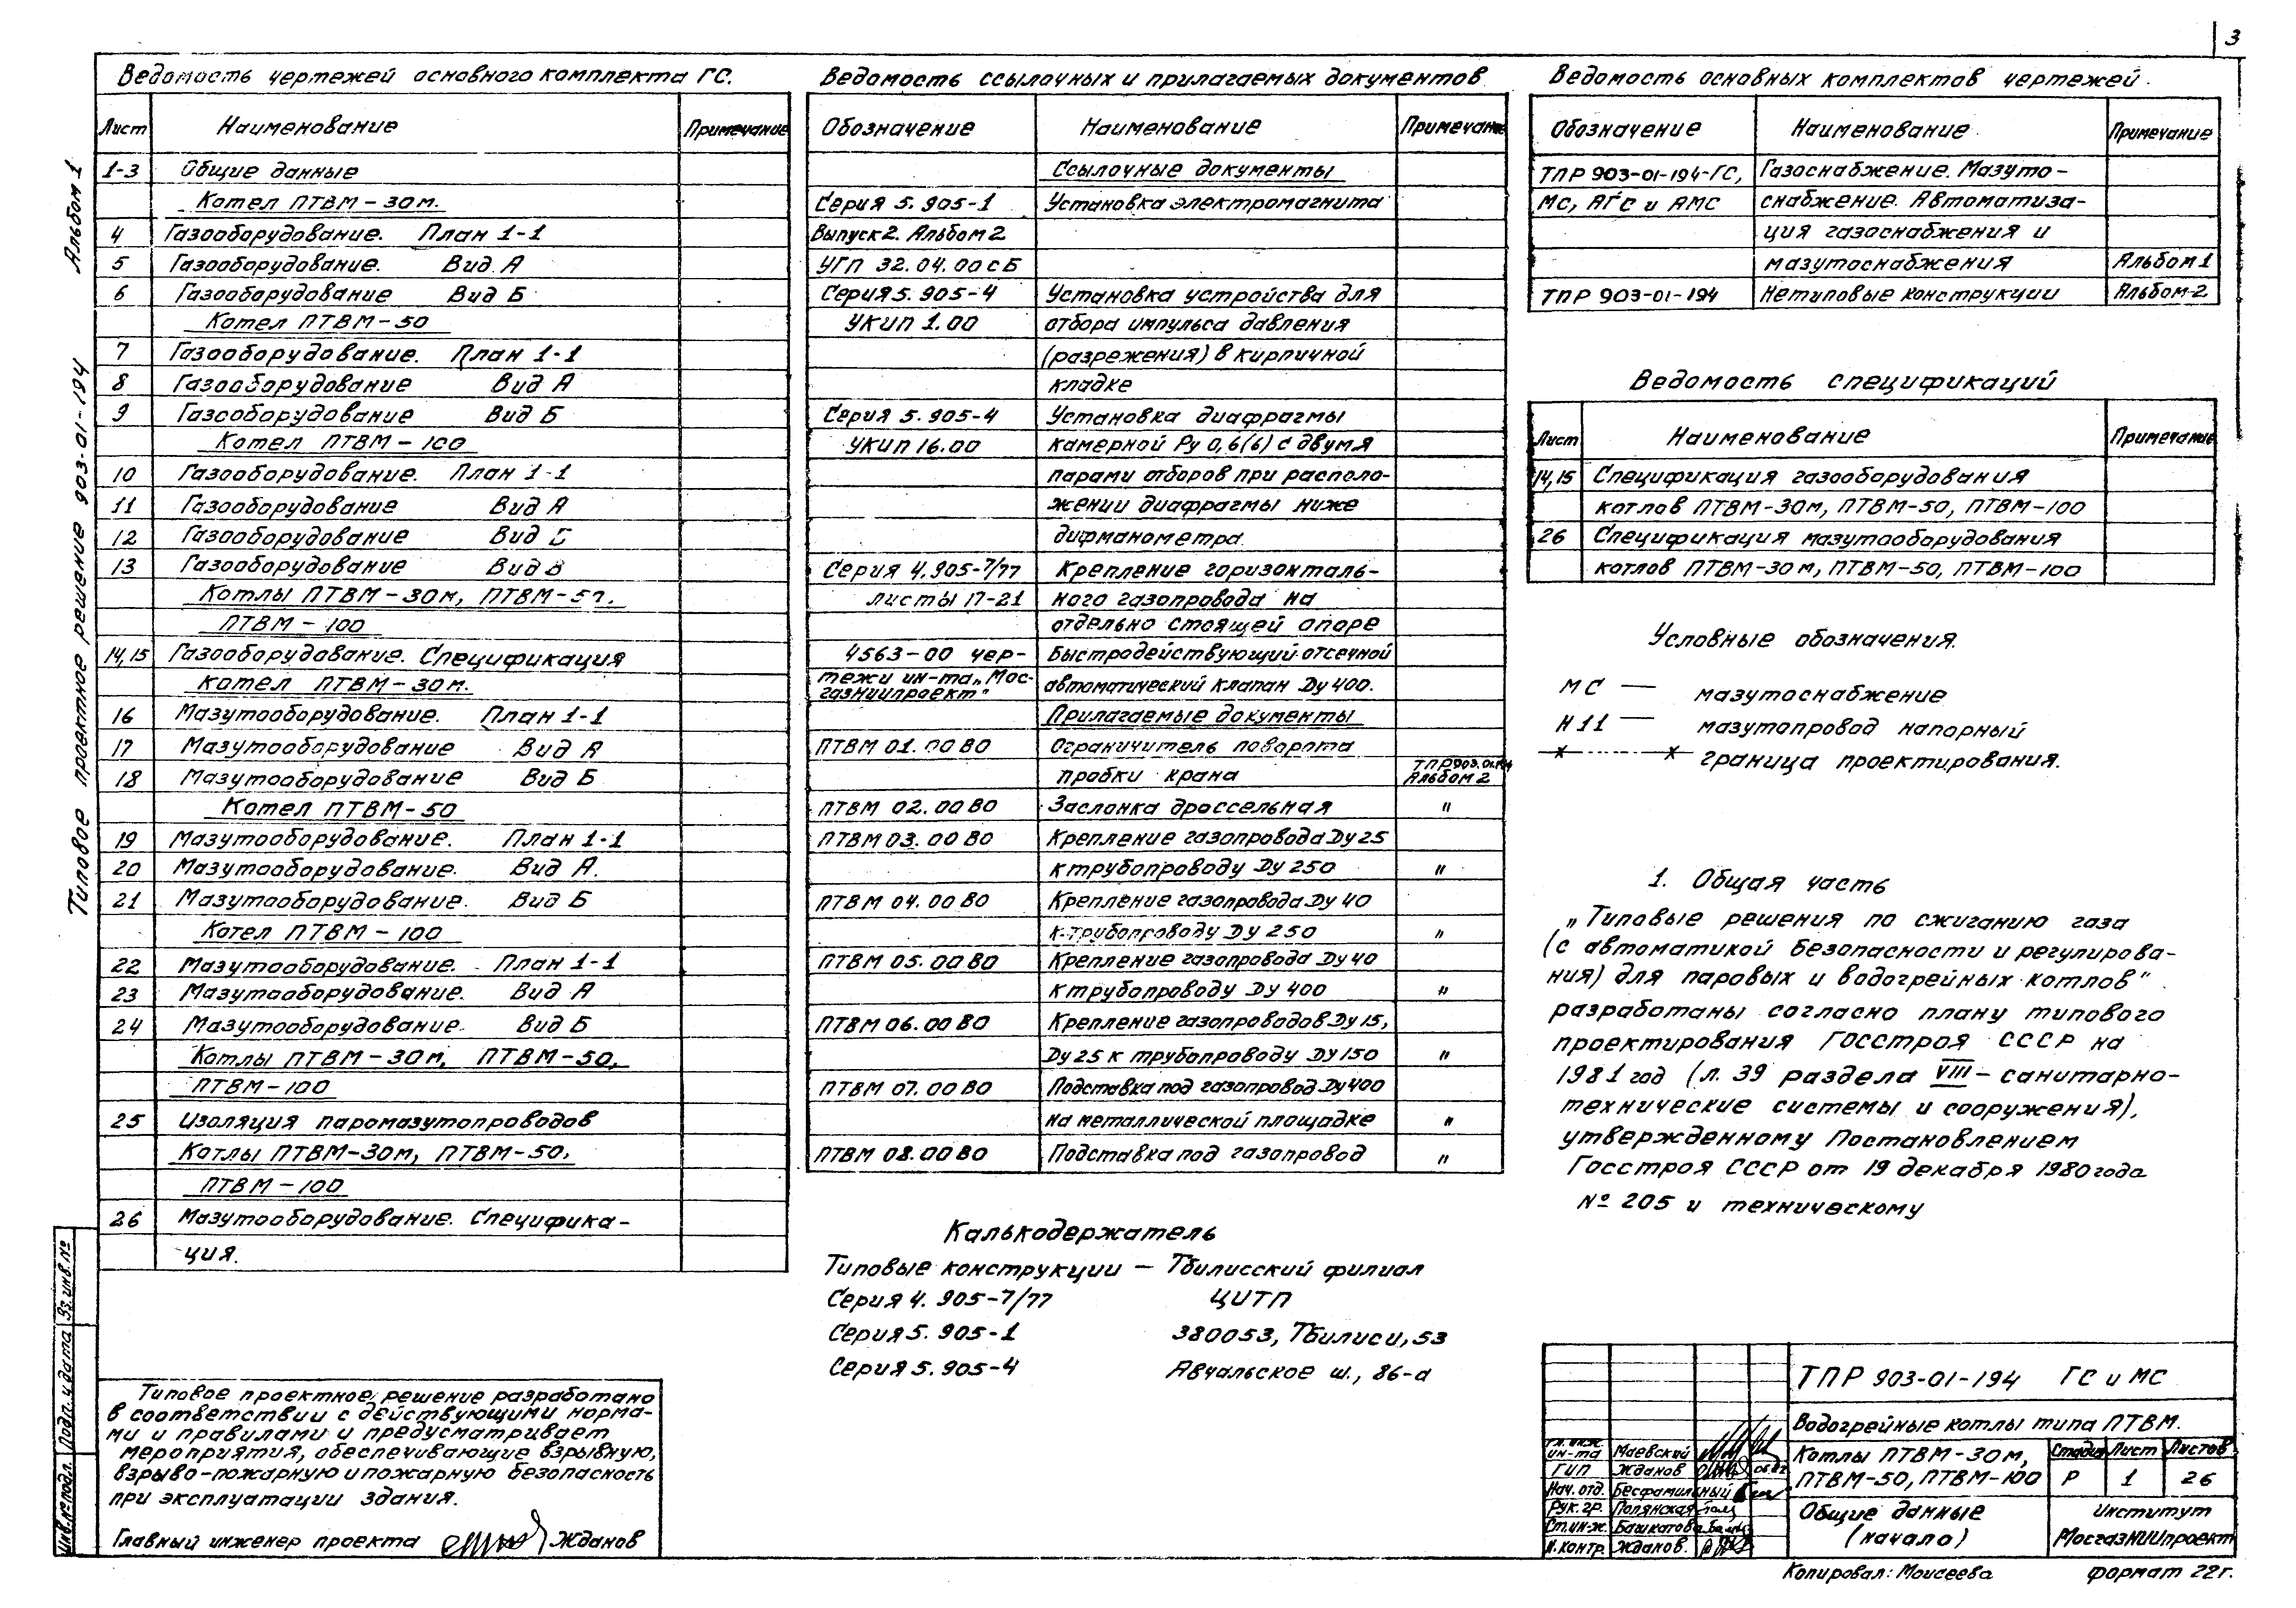 3
Альбом 1
Типовое проектное решение 903-01-194
Ведомость чертежей основного комплекта ГС.
Лист Наименование Примечание
1-3 Общие данные
Котел ПТВМ-30м.
4 Газооборудование. План 1-1
5 Газооборудование. Вид А
6 Газооборудование Вид Б
Котел ПТВМ-50
7 Газооборудование. План 1-1
8 Газооборудование Вид А
9 Газооборудование Вид Б
Котел ПТВМ-100
10 Газооборудование. План 1-1
11 Газооборудование Вид А
12 Газооборудование Вид Б
13 Газооборудование Вид В
Котлы ПТВМ-30м, ПТВМ-50,
ПТВМ-100
14,15 Газооборудование. Спецификация
Котел ПТВМ-30м.
16 Мазутооборудование. План 1-1
17 Мазутооборудование Вид А
18 Мазутооборудование Вид Б
Котел ПТВМ-50
19 Мазутооборудование. План 1-1
20 Мазутооборудование. Вид А.
21 Мазутооборудование. Вид Б
Котел ПТВМ-100
22 Мазутооборудование. План 1-1
23 Мазутооборудование. Вид А
24 Мазутооборудование. Вид Б
Котлы ПТВМ-30м, ПТВМ-50,
ПТВМ-100
25 Изоляция паромазутопроводов
Котлы ПТВМ-30м, ПТВМ-50,
ПТВМ-100
26 Мазутооборудование. Специфика-
ция.
Типовое проектное решение разработано
в соответствии с действующими норма-
ми и правилами и предусматривает
мероприятия, обеспечивающие взрывную,
взрыво-пожарную и пожарную безопасность
при эксплуатации здания.
Главный инженер проекта Жданов
Инв.№ подл. Подп. и дата Вз. инв. №
Ведомость ссылочных и прилагаемых документов
Обозначение Наименование Примечание
Ссылочные документы
Серия 5.905-1 Установка электромагнита
Выпуск 2. Альбом 2
УГП 32.04.00 СБ
Серия 5.905-4 Установка устройства для
УКИП 1.00 отбора импульса давления
(разрежения) в кирпичной
кладке
Серия 5.905-4 Установка диафрагмы
УКИП 16.00 камерной Ру 0,6(6) с двумя
парами отборов при располо-
жении диафрагмы ниже
дифманометра.
Серия 4.905-7/77 Крепление горизонталь-
листы 17-21 ного газопровода на
отдельно стоящей опоре
4563-00 чер- Быстродействующий отсечной
тежи ин-та „Мос- автоматический клапан Ду 400.
газниипроект"
Прилагаемые документы
ПТВМ 01.00 ВО Ограничитель поворота
пробки крана ТПР 903.01.194
Альбом 2
ПТВМ 02.00 ВО Заслонка дроссельная "
ПТВМ 03.00 ВО Крепление газопровода Ду 25
к трубопроводу Ду 250 "
ПТВМ 04.00 ВО Крепление газопровода Ду 40
к трубопроводу Ду 250 "
ПТВМ 05.00 ВО Крепление газопровода Ду 40
к трубопроводу Ду 400 "
ПТВМ 06.00 ВО Крепление газопроводов Ду 15,
Ду 25 к трубопроводу Ду 150 "
ПТВМ 07.00 ВО Подставка под газопровод Ду 400
на металлической площадке "
ПТВМ 08.00 ВО Подставка под газопровод "
Калькодержатель
Типовые конструкции — Тбилисский филиал
Серия 4.905-7/77 ЦИТП
Серия 5.905-1 380053, Тбилиси, 53
Серия 5.905-4 Авчальское ш., 86-а
Ведомость основных комплектов чертежей.
Обозначение Наименование Примечание
ТПР 903-01-194-ГС, Газоснабжение. Мазуто-
МС, АГС и АМС снабжение. Автоматиза-
ция газоснабжения и
мазутоснабжения Альбом 1
ТПР 903-01-194 Нетиповые конструкции Альбом 2
Ведомость спецификаций
Лист Наименование Примечание
14,15 Спецификация газооборудования
котлов ПТВМ-30м, ПТВМ-50, ПТВМ-100
26 Спецификация мазутооборудования
котлов ПТВМ-30м, ПТВМ-50, ПТВМ-100
Условные обозначения.
МС — мазутоснабжение
Н11 — мазутопровод напорный
граница проектирования.
1. Общая часть
„Типовые решения по сжиганию газа
(с автоматикой безопасности и регулирова-
ния) для паровых и водогрейных котлов"
разработаны согласно плану типового
проектирования Госстроя СССР на
1981 год (л. 39 раздела VIII - санитарно-
технические системы и сооружения),
утвержденному Постановлением
Госстроя СССР от 19 декабря 1980 года
№ 205 и техническому
ТПР 903-01-194 ГС и МС
Водогрейные котлы типа ПТВМ.
Гл. инж. ин-та Маевский
ГИП Жданов
Нач. отд. Бесфамильный
Рук. гр. Полянская
Ст. инж. Башкатова
Н. контр. Жданов.
Котлы ПТВМ-30м,
ПТВМ-50, ПТВМ-100
Стадия Лист Листов
Р 1 26
Общие данные
(начало)
Институт
МосгазНИИпроект
Копировал: Моисеева формат 22г.